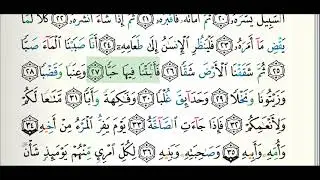 السَّبِيلَ يَسَّرَهُۥ ٢٠ ثُمَّ أَمَاتَهُۥ فَأَقْبَرَهُۥ ٢١ ثُمَّ إِذَا شَآءَ أَنشَرَهُۥ ٢٢ كَلَّا لَمَّا
يَقْضِ مَآ أَمَرَهُۥ ٢٣ فَلْيَنظُرِ ٱلْإِنسَٰنُ إِلَىٰ طَعَامِهِۦٓ ٢٤ أَنَّا صَبَبْنَا ٱلْمَآءَ صَبًّا
٢٥ ثُمَّ شَقَقْنَا ٱلْأَرْضَ شَقًّا ٢٦ فَأَنۢبَتْنَا فِيهَا حَبًّا ٢٧ وَعِنَبًا وَقَضْبًا ٢٨
وَزَيْتُونًا وَنَخْلًا ٢٩ وَحَدَآئِقَ غُلْبًا ٣٠ وَفَٰكِهَةً وَأَبًّا ٣١ مَّتَٰعًا لَّكُمْ
وَلِأَنْعَٰمِكُمْ ٣٢ فَإِذَا جَآءَتِ ٱلصَّآخَّةُ ٣٣ يَوْمَ يَفِرُّ ٱلْمَرْءُ مِنْ أَخِيهِ ٣٤
وَأُمِّهِۦ وَأَبِيهِ ٣٥ وَصَٰحِبَتِهِۦ وَبَنِيهِ ٣٦ لِكُلِّ ٱمْرِئٍ مِّنْهُمْ يَوْمَئِذٍ شَأْنٌ